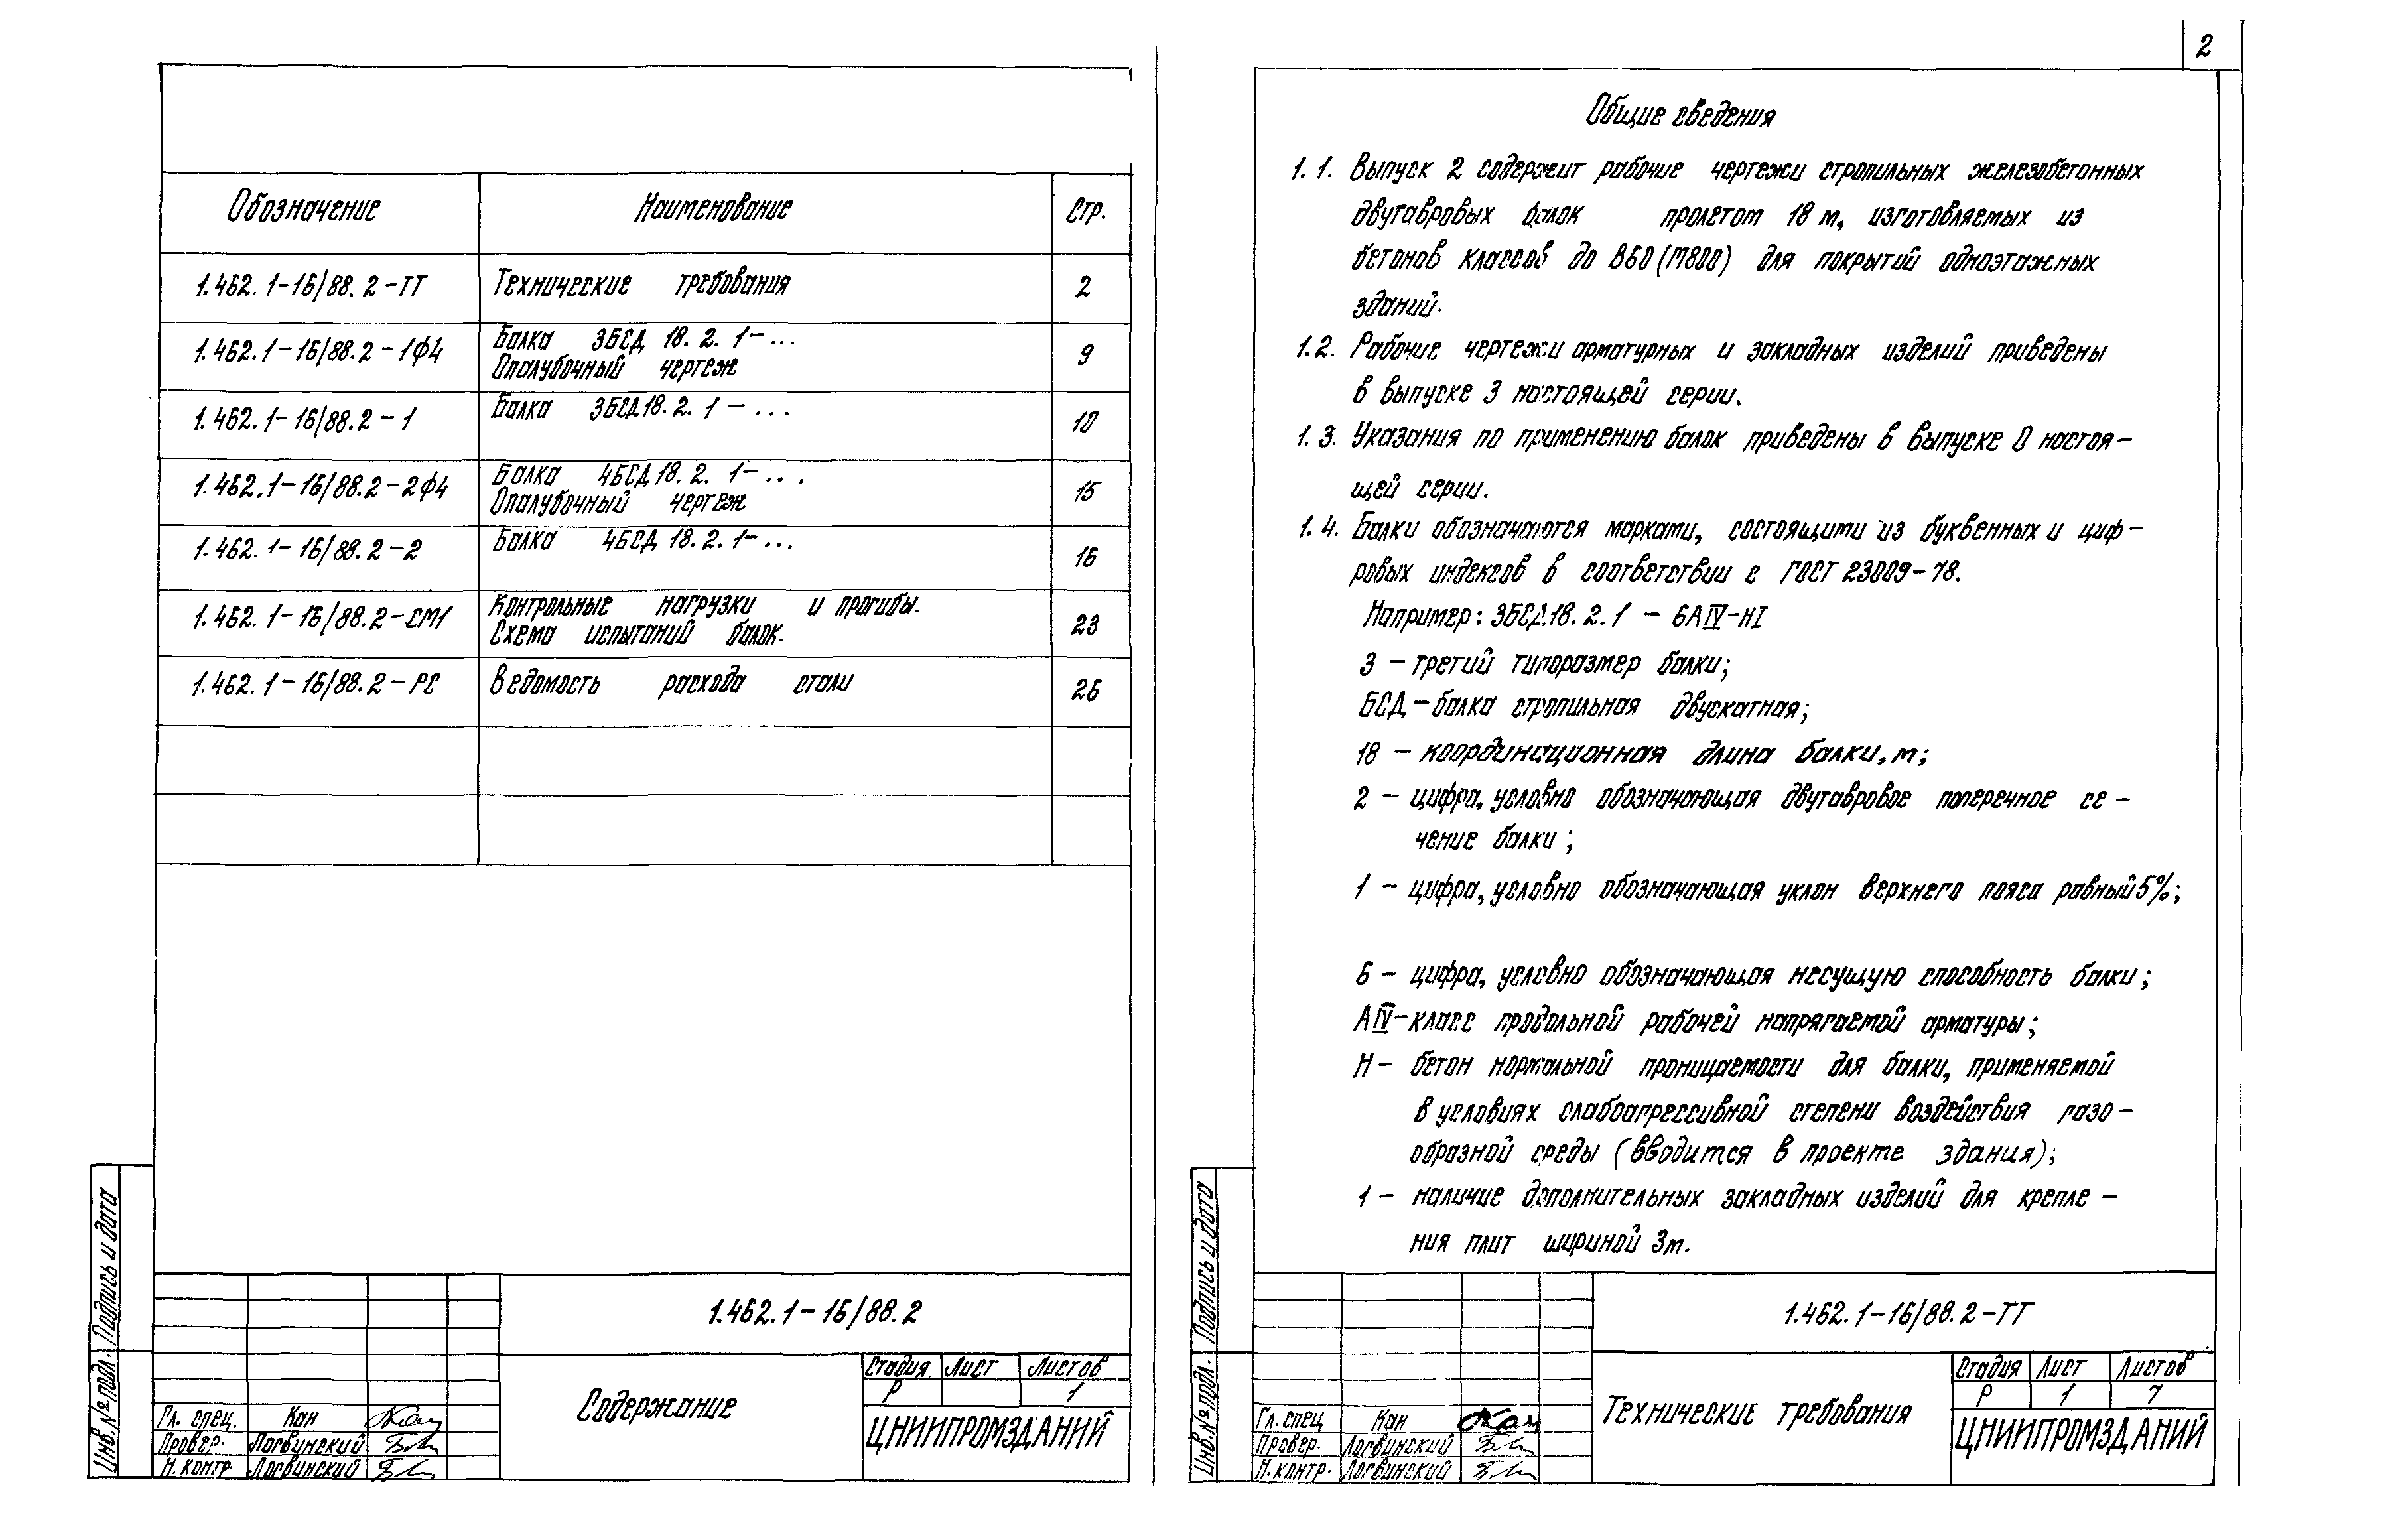 Обозначение Наименование Стр.
1.462.1-16/88.2-ТТ Технические требования 2
1.462.1-16/88.2-1Ф4 Балка 3БСД 18.2.1-...
Опалубочный чертеж 9
1.462.1-16/88.2-1 Балка 3БСД 18.2.1-... 10
1.462.1-16/88.2-2Ф4 Балка 4БСД 18.2.1-...
Опалубочный чертеж 15
1.462.1-16/88.2-2 Балка 4БСД 18.2.1-... 16
1.462.1-16/88.2-СМ1 Контрольные нагрузки и прогибы.
Схема испытаний балок. 23
1.462.1-16/88.2-РС Ведомость расхода стали 26
Инв.№ подл. Подпись и дата
1.462.1-16/88.2
Содержание
Стадия Лист Листов
Р 1
ЦНИИПРОМЗДАНИЙ
Гл. спец. Кан
Провер. Логвинский
Н. контр Логвинский
2
Общие сведения
1.1. Выпуск 2 содержит рабочие чертежи стропильных железобетонных
двутавровых балок пролетом 18 м, изготовляемых из
бетонов классов до В60 (М800) для покрытий одноэтажных
зданий.
1.2. Рабочие чертежи арматурных и закладных изделий приведены
в выпуске 3 настоящей серии.
1.3. Указания по применению балок приведены в выпуске 0 настоя-
щей серии.
1.4. Балки обозначаются марками, состоящими из буквенных и циф-
ровых индексов в соответствии с ГОСТ 23009-78.
Например: 3БСД.18.2.1 - 6АIV-Н1
3 - третий типоразмер балки;
БСД - балка стропильная двускатная;
18 - координационная длина балки, м;
2 - цифра, условно обозначающая двутавровое поперечное се-
чение балки;
1 - цифра, условно обозначающая уклон верхнего пояса равный 5%;
6 - цифра, условно обозначающая несущую способность балки;
АIV-класс продольной рабочей напрягаемой арматуры;
Н - бетон нормальной проницаемости для балки, применяемой
в условиях слабоагрессивной степени воздействия газо-
образной среды (вводится в проекте здания);
1 - наличие дополнительных закладных изделий для крепле-
ния плит шириной 3м.
Инв.№ подл. Подпись и дата
1.462.1-16/88.2-ТТ
Технические требования
Стадия Лист Листов
Р 1 7
ЦНИИПРОМЗДАНИЙ
Гл. спец Кан
Провер. Логвинский
Н. контр. Логвинский